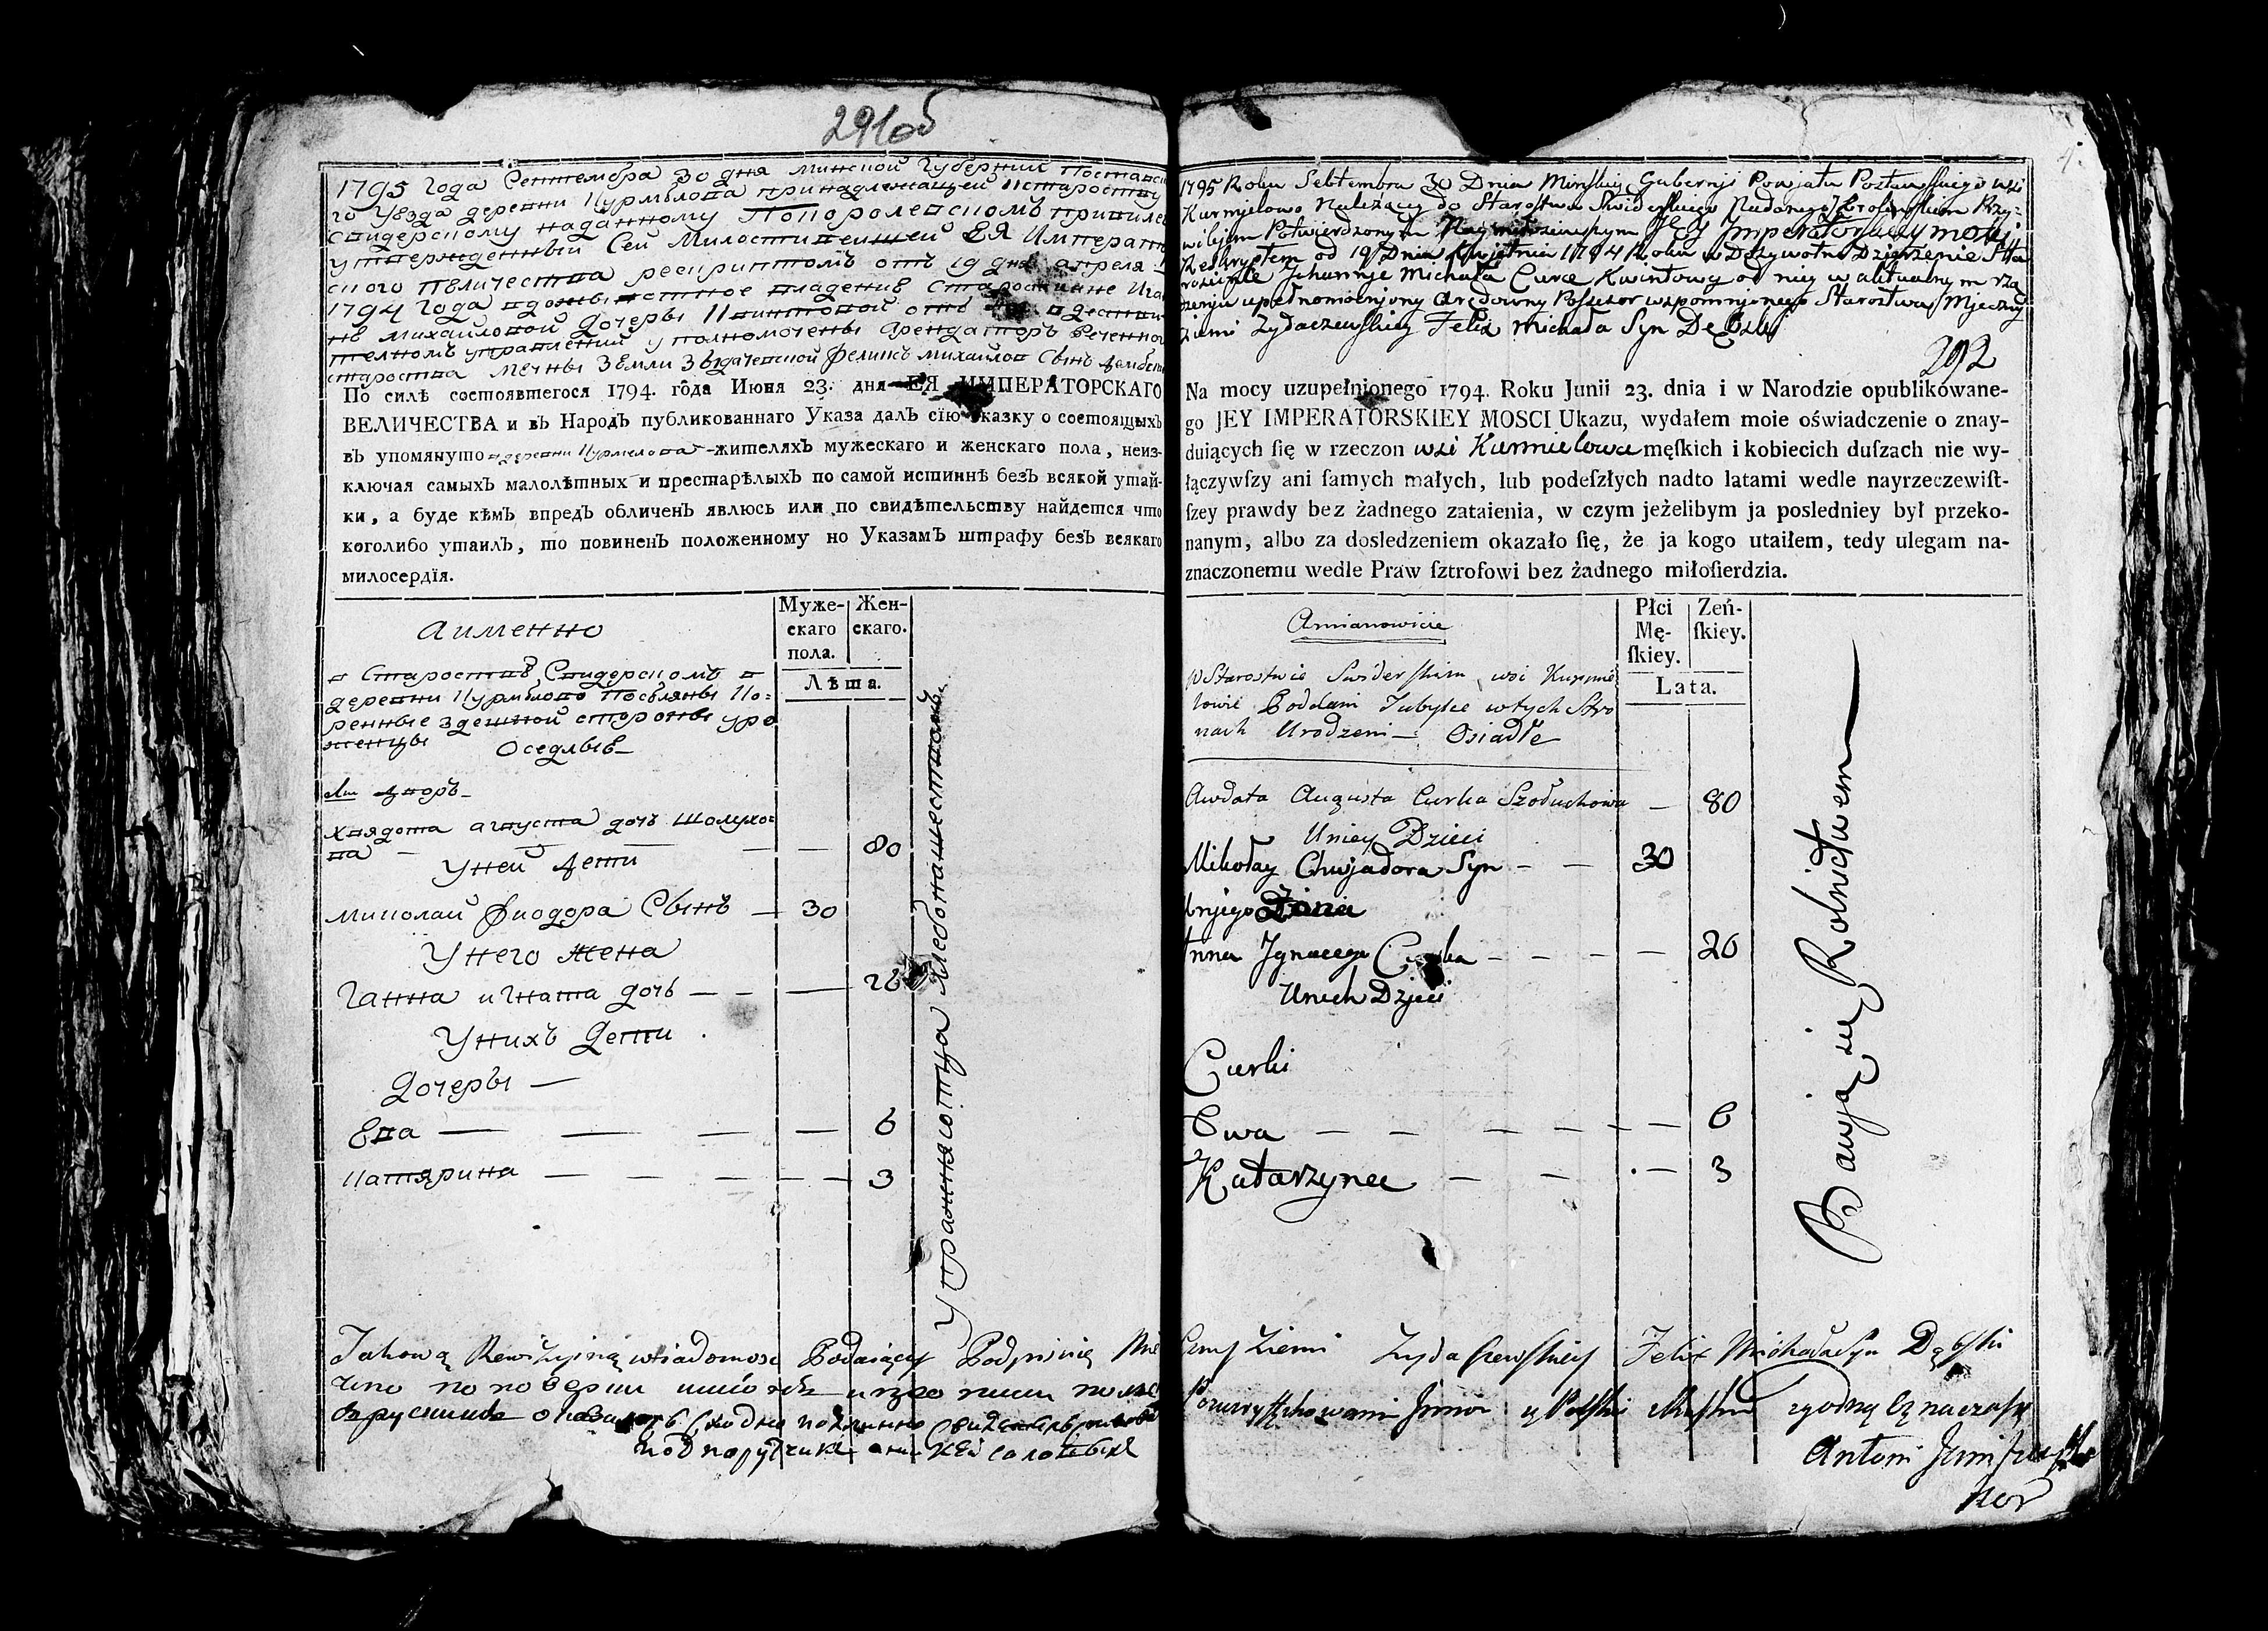 291об
1795 года Сентембра 30 дня Минской Губернии Поставск
го Уезда деревни Курмѣлова принадлежащей к старосту
Свидерскому наданному Покоролевскомъ привиле
утвержденный Сей Милостивейшей ЕЯ Императо
ского величества рескриптомъ отъ 19 дня апреля
1794 года вдоживотное владение Старостине
не Михайловой дочеры Квинтовой отъ
телномъ управлений уполномочены арендаторъ реченного
староства мечны Земли Зыдачевской Феликсъ михайлов Сынъ
По силѣ состоявшегося 1794. года Июня 23. дня ЕЯ ИМПЕРАТОРСКАГО
ВЕЛИЧЕСТВА и вЪ НародЪ публикованнаго Указа далЪ сїю сказку о состоящыхЪ
вЪ упомянуто деревни Курмелова жителяхЪ мужескаго и женскаго пола, неиз-
ключая самыхЪ малолѣтныхЪ и престарѣлыхЪ по самой истиннѣ безЪ всякой утай-
ки, а буде кѣмЪ впредЪ обличенЪ явлюсь или по свидѣтельству найдется что
коголибо утаилЪ, то повиненЪ положенному по УказамЪ штрафу безЪ всякаго
милосердїя.
аименно
Муже-
скаго
пола.
Жен-
скаго.
Лѣта.
в Староствѣ Свидерскомъ в
деревни Курмѣлово Посѣляны Ко-
ренные здешной стороны уро
женцы Оседлыѣ
дворъ
Хвядота августа дочь Шолухо-
ва — 80
Уней дети
Миколай Фиодора Сынъ — 30
Унего жена
Ганна игната дочь — 26
Унихъ дети
Дочеры —
Ева — 6
Катярина — 3
Управняютца хлебопашествомъ
Takową Rewizyiną wiadomosc Podaiący Podpisuię Mie
под порутчикъ
4.
1795 Roku Sebtembra 30 Dnia Minskiej Gubernji Powjatu Postawskiego wsi
Kurmjelowo Należący do Starostwa Swiderskiego Nadanego Krolewskim Przy-
wilejem Potwierdzonym Naymiłosciwszym JEJ Jmperatorskiey mosci
Reskryptem od 19 Dnia Apryla 1794 Roku w Dożywotne Dzierżenie Sta
roscinie Johannie Michała Curce Kwintowy od niej w aktualnym rzą
dzeniu upełnomocnjony Arędowny Possesor wspomnjonego Starostwa Mjeczny
ziemi Zydaczewskiej Felix Michała Syn Dębski
292
Na mocy uzupełnionego 1794. Roku Junii 23. dnia i w Narodzie opublikówane-
go JEY IMPERATORSKIEY MOSCI Ukazu, wydałem moie oświadczenie o znay-
duiących ſię w rzeczon wsi Kurmielowa męſkich i kobiecich duſzach nie wy-
łączywſzy ani ſamych małych, lub podeſzłych nadto latami wedle nayrzeczewiſt-
ſzey prawdy bez żadnego zataienia, w czym jeżelibym ja posledniey był przeko-
nanym, albo za dosledzeniem okazało ſię, że ja kogo utaiłem, tedy ulegam na-
znaczonemu wedle Praw ſztrofowi bez żadnego miłoſierdzia.
Amianowicie
Płci
Mę-
ſkiey.
Zeń-
ſkiey.
Lata.
w Starostwie Swiderskim wsi Kurmie
lowie Poddani Tubylce w tych Stro
nach Urodzeni — Osiadłe
Awdota Augusta Curka Szołuchowa — 80
Uniey Dzieci
Mikołay Chwjadora Syn — — 30
Unjego Żona
Anna Jgnacego Curka — — — — 26
Unich Dzjeci
Curki
Ewa — — — — — — 6
Katarzyna — — — 3
Bawją się Rolnictwem
czny Ziemi Zydaczewskiey Felix Michała Syn Dębski
Antoni